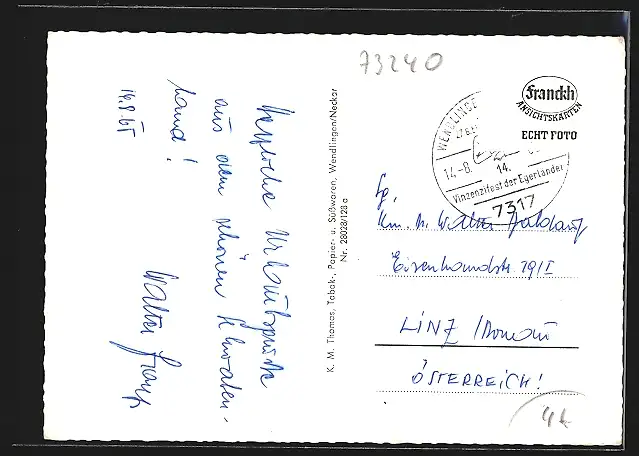 73240
Herzliche Urlaubsgrüße
aus dem schönen Schwaben-
land!
14.8.65
Walter
K. M. Thomas, Tabak-, Papier- u. Süßwaren, Wendlingen/Neckar
Nr. 28028/128 a
Franckh
ANSICHTSKARTEN
ECHT FOTO
WENDLINGE
14.-8.
14.
Vinzenzifest der Egerländer
7317
Walter
19/I
LINZ /Donau
ÖSTERREICH!